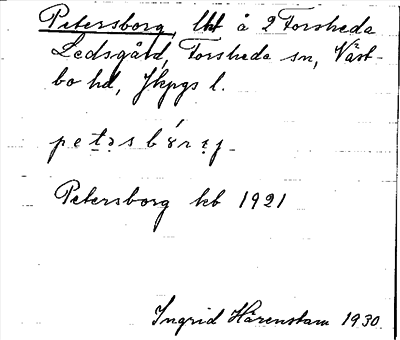 Petersborg, lht å 2 Forsheda
Ledsgård, Forsheda sn, Väst-
bo hd, Jkpgs l.
Petersborg kb 1921
Ingrid Härenstam 1930